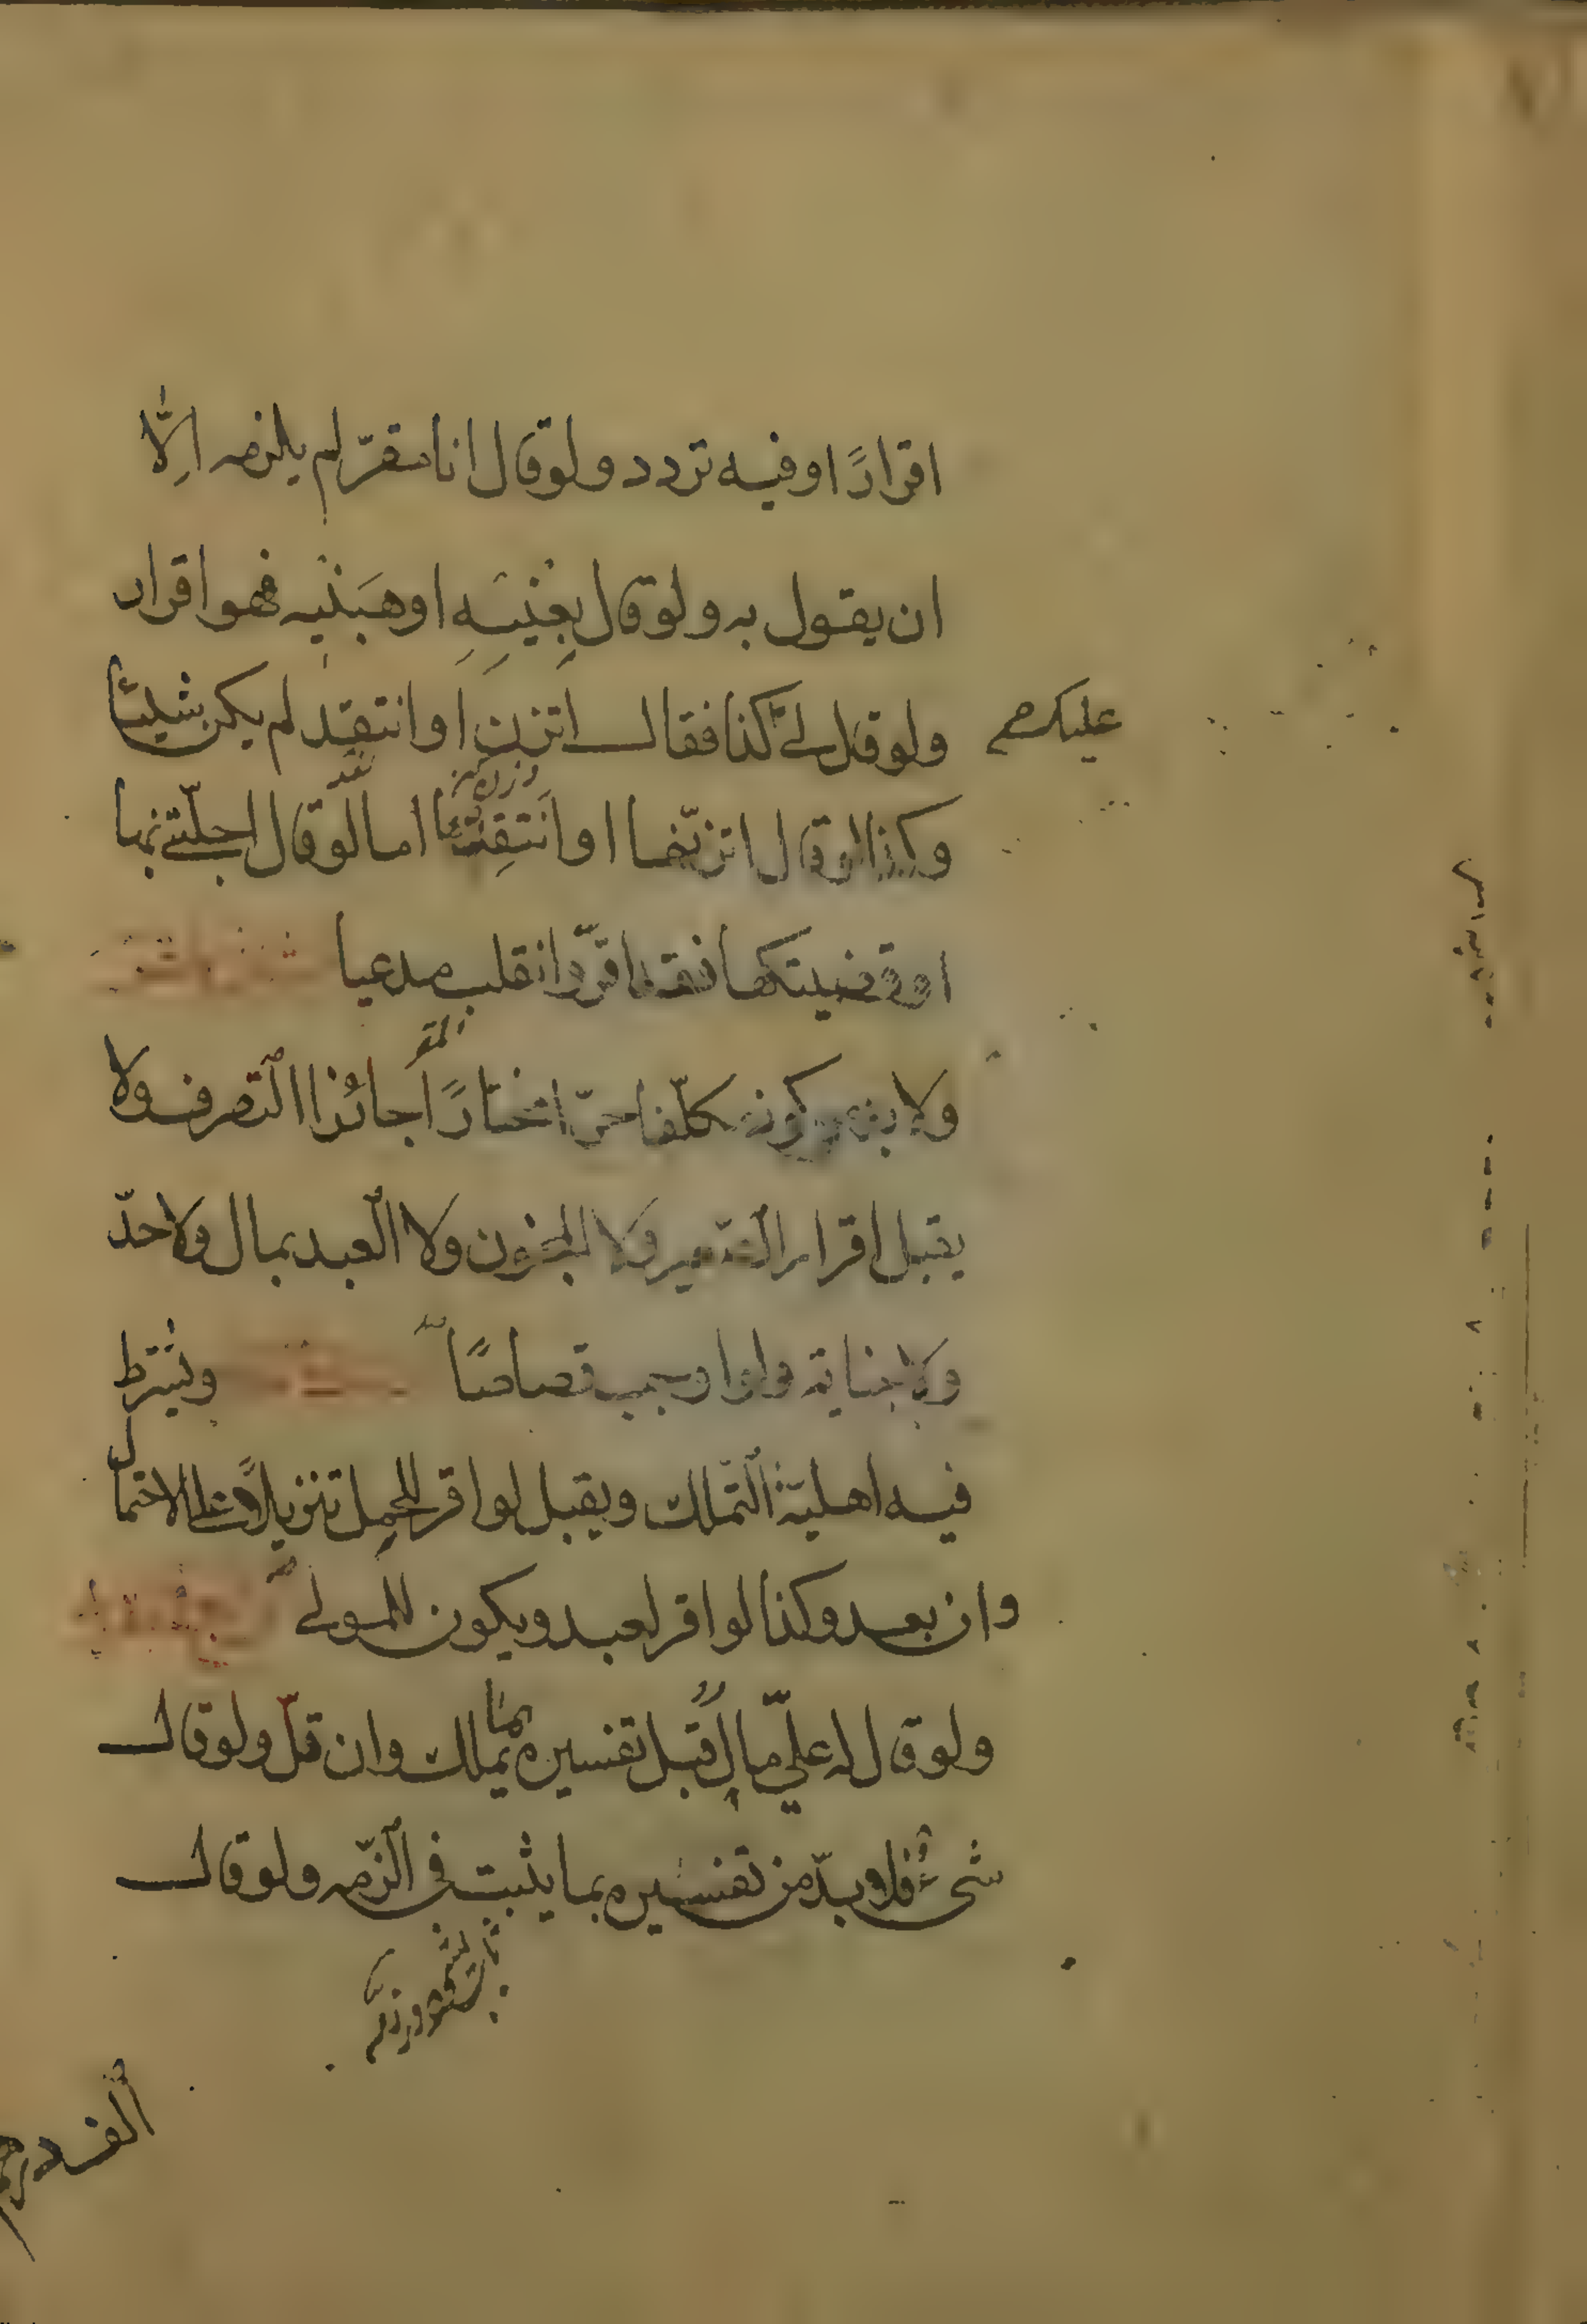 اقرارًا وفيه تردد ولو قال انا مقرّ لم يلزمه اِلّا
ان يقول به ولو قال بِعْنيهِ او هَبنيِه فهو اقرار
ولو قال لي عليك كذا فقال اتزن او انتقد لم يكن شيئًا
وكذا لو قال اتزنها او انتقدها اما لو قال اجلتني بها
او قضيتكها فقد اقرّ وانقلب مدعيا
المقر
ولا بد من كونه مكلّفا حرّا مختارًا جائز التصرف ولا
يقبل اقرار الصغير ولا المجنون ولا العبد بمال ولا حدّ
ولا جناية ولو اوجبت قصاصًا ويشترط
فيه اهليّة التملك ويقبل لو اقر للحمل تنزيلًا على الاحتمال
وان بعد وكذا لو اقر لعبد ويكون للمولى
ولو قال له عليّ مال قبل تفسيره بما يملك وان قلّ ولو قال
شيء فلا بدّ من تفسيره بما يثبت في الذمه ولو قال
الف درهم